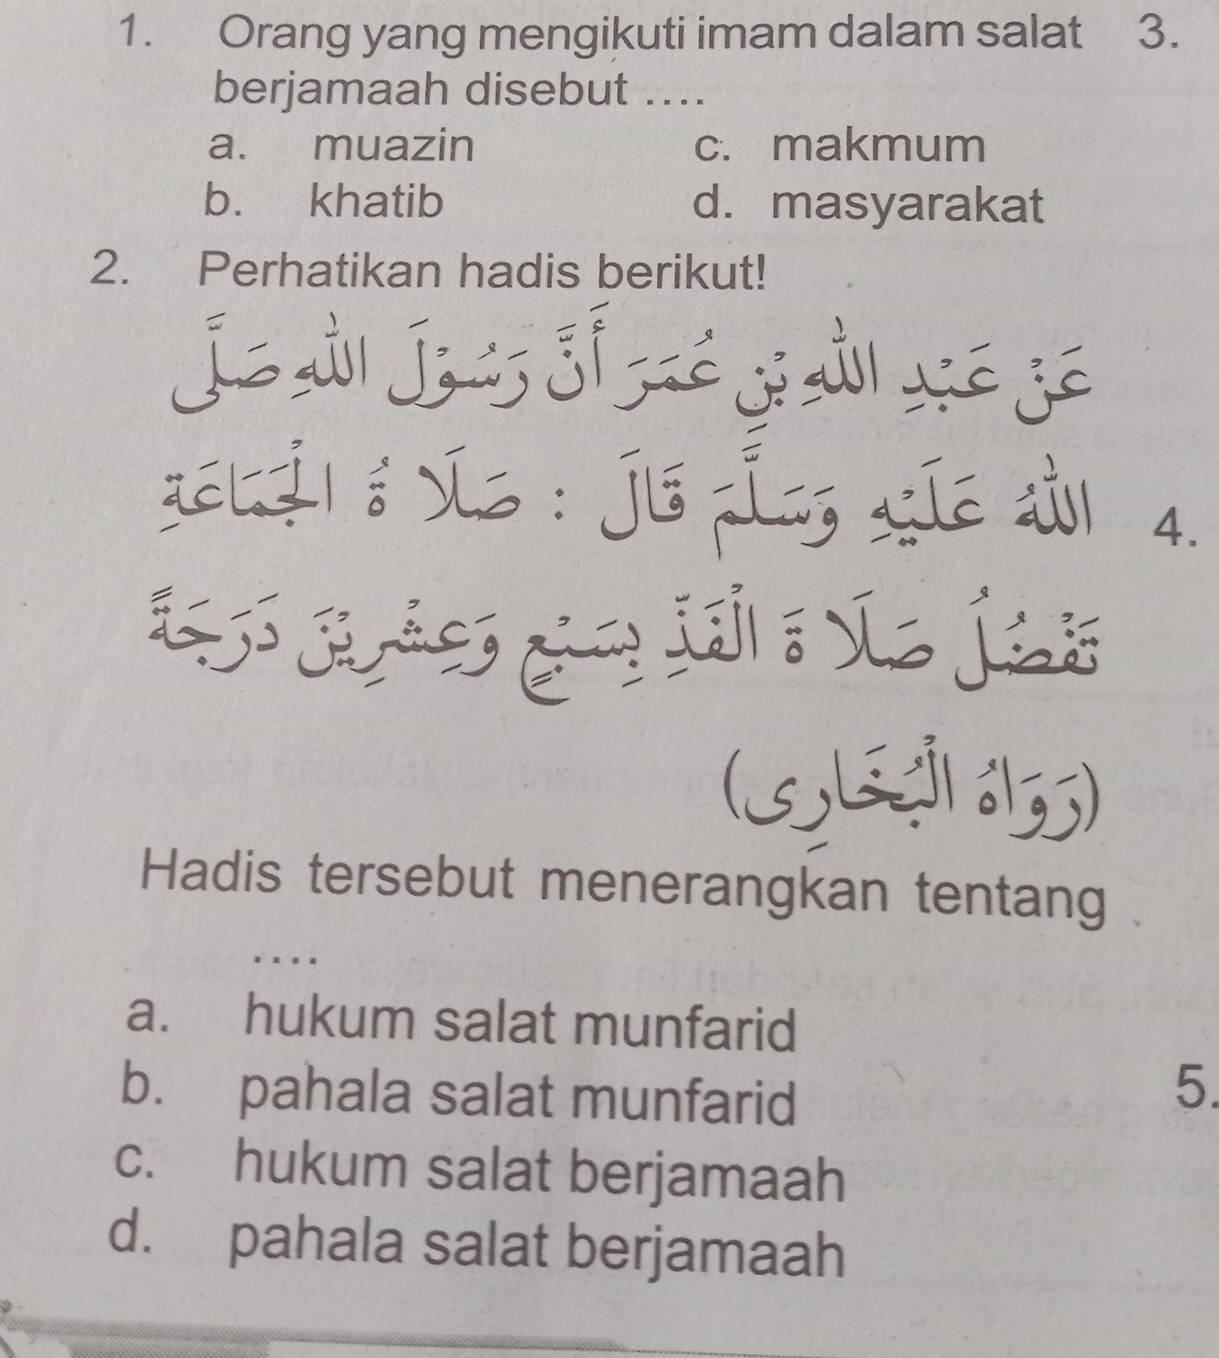 1. Orang yang mengikuti imam dalam salat 3.
berjamaah disebut ....
a. muazin c. makmum
b. khatib d. masyarakat
2. Perhatikan hadis berikut!
عَنْ عَبْدِ اللهِ بْنِ عُمَرَ أَنَّ رَسُوْلَ اللهِ صَلَّى
اللهُ عَلَيْهِ وَسَلَّمَ قَالَ : صَلَا ةُ الْجَمَاعَةِ 4.
تَفْضُلُ صَلَا ةَ الْفَذِّ بِسَبْعٍ وَعِشْرِيْنَ دَرَجَةً
(رَوَاهُ الْبُخَارِي)
Hadis tersebut menerangkan tentang
....
a. hukum salat munfarid
b. pahala salat munfarid 5.
c. hukum salat berjamaah
d. pahala salat berjamaah